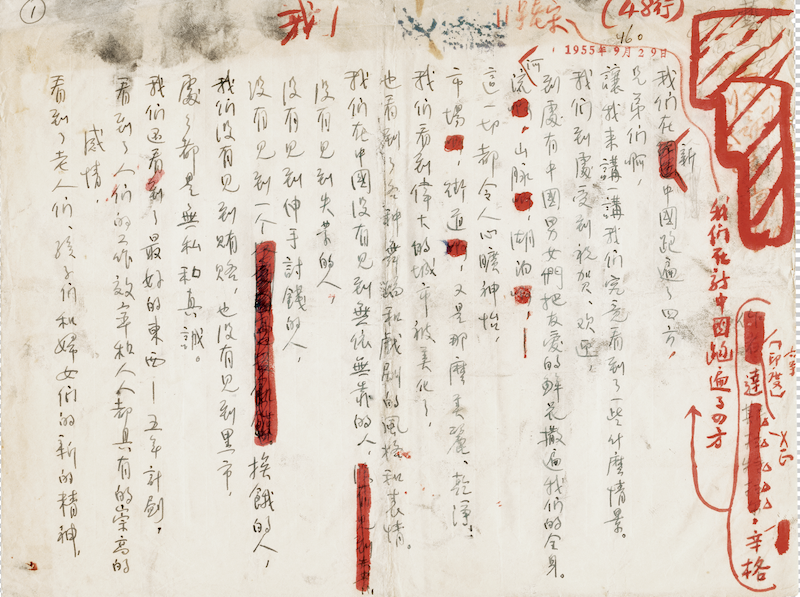 ①
我!
(48行)
460
1955年9月29日
我们在新中國跑遍了四方
達
辛格
(印度)
我们在新中國跑遍了四方，
兄弟们啊，
讓我来講一講我们究竟看到了一些什麼情景。
我们到處受到祝賀、欢迎。
到處有中國男女們把友愛的鮮花撒遍我们的全身。
河流，山脉，湖泊，
這一切都令人心曠神怡，
市場，街道，又是那麼美麗、乾淨！
我们看到偉大的城市被美化了，
也看到了各种舞蹈和戲剧的風格和表情。
我们在中國没有見到無依無靠的人，
没有見到失業的人，
没有見到伸手討錢的人，
没有見到一个挨餓的人，
我们没有見到賄賂，也没有見到黑市，
處々都是無私和真誠。
我们还看到了最好的東西—五年計劃，
看到了人们的工作效率和人人都具有的崇高的
感情，
看到了老人们、孩子们和婦女们的新的精神，